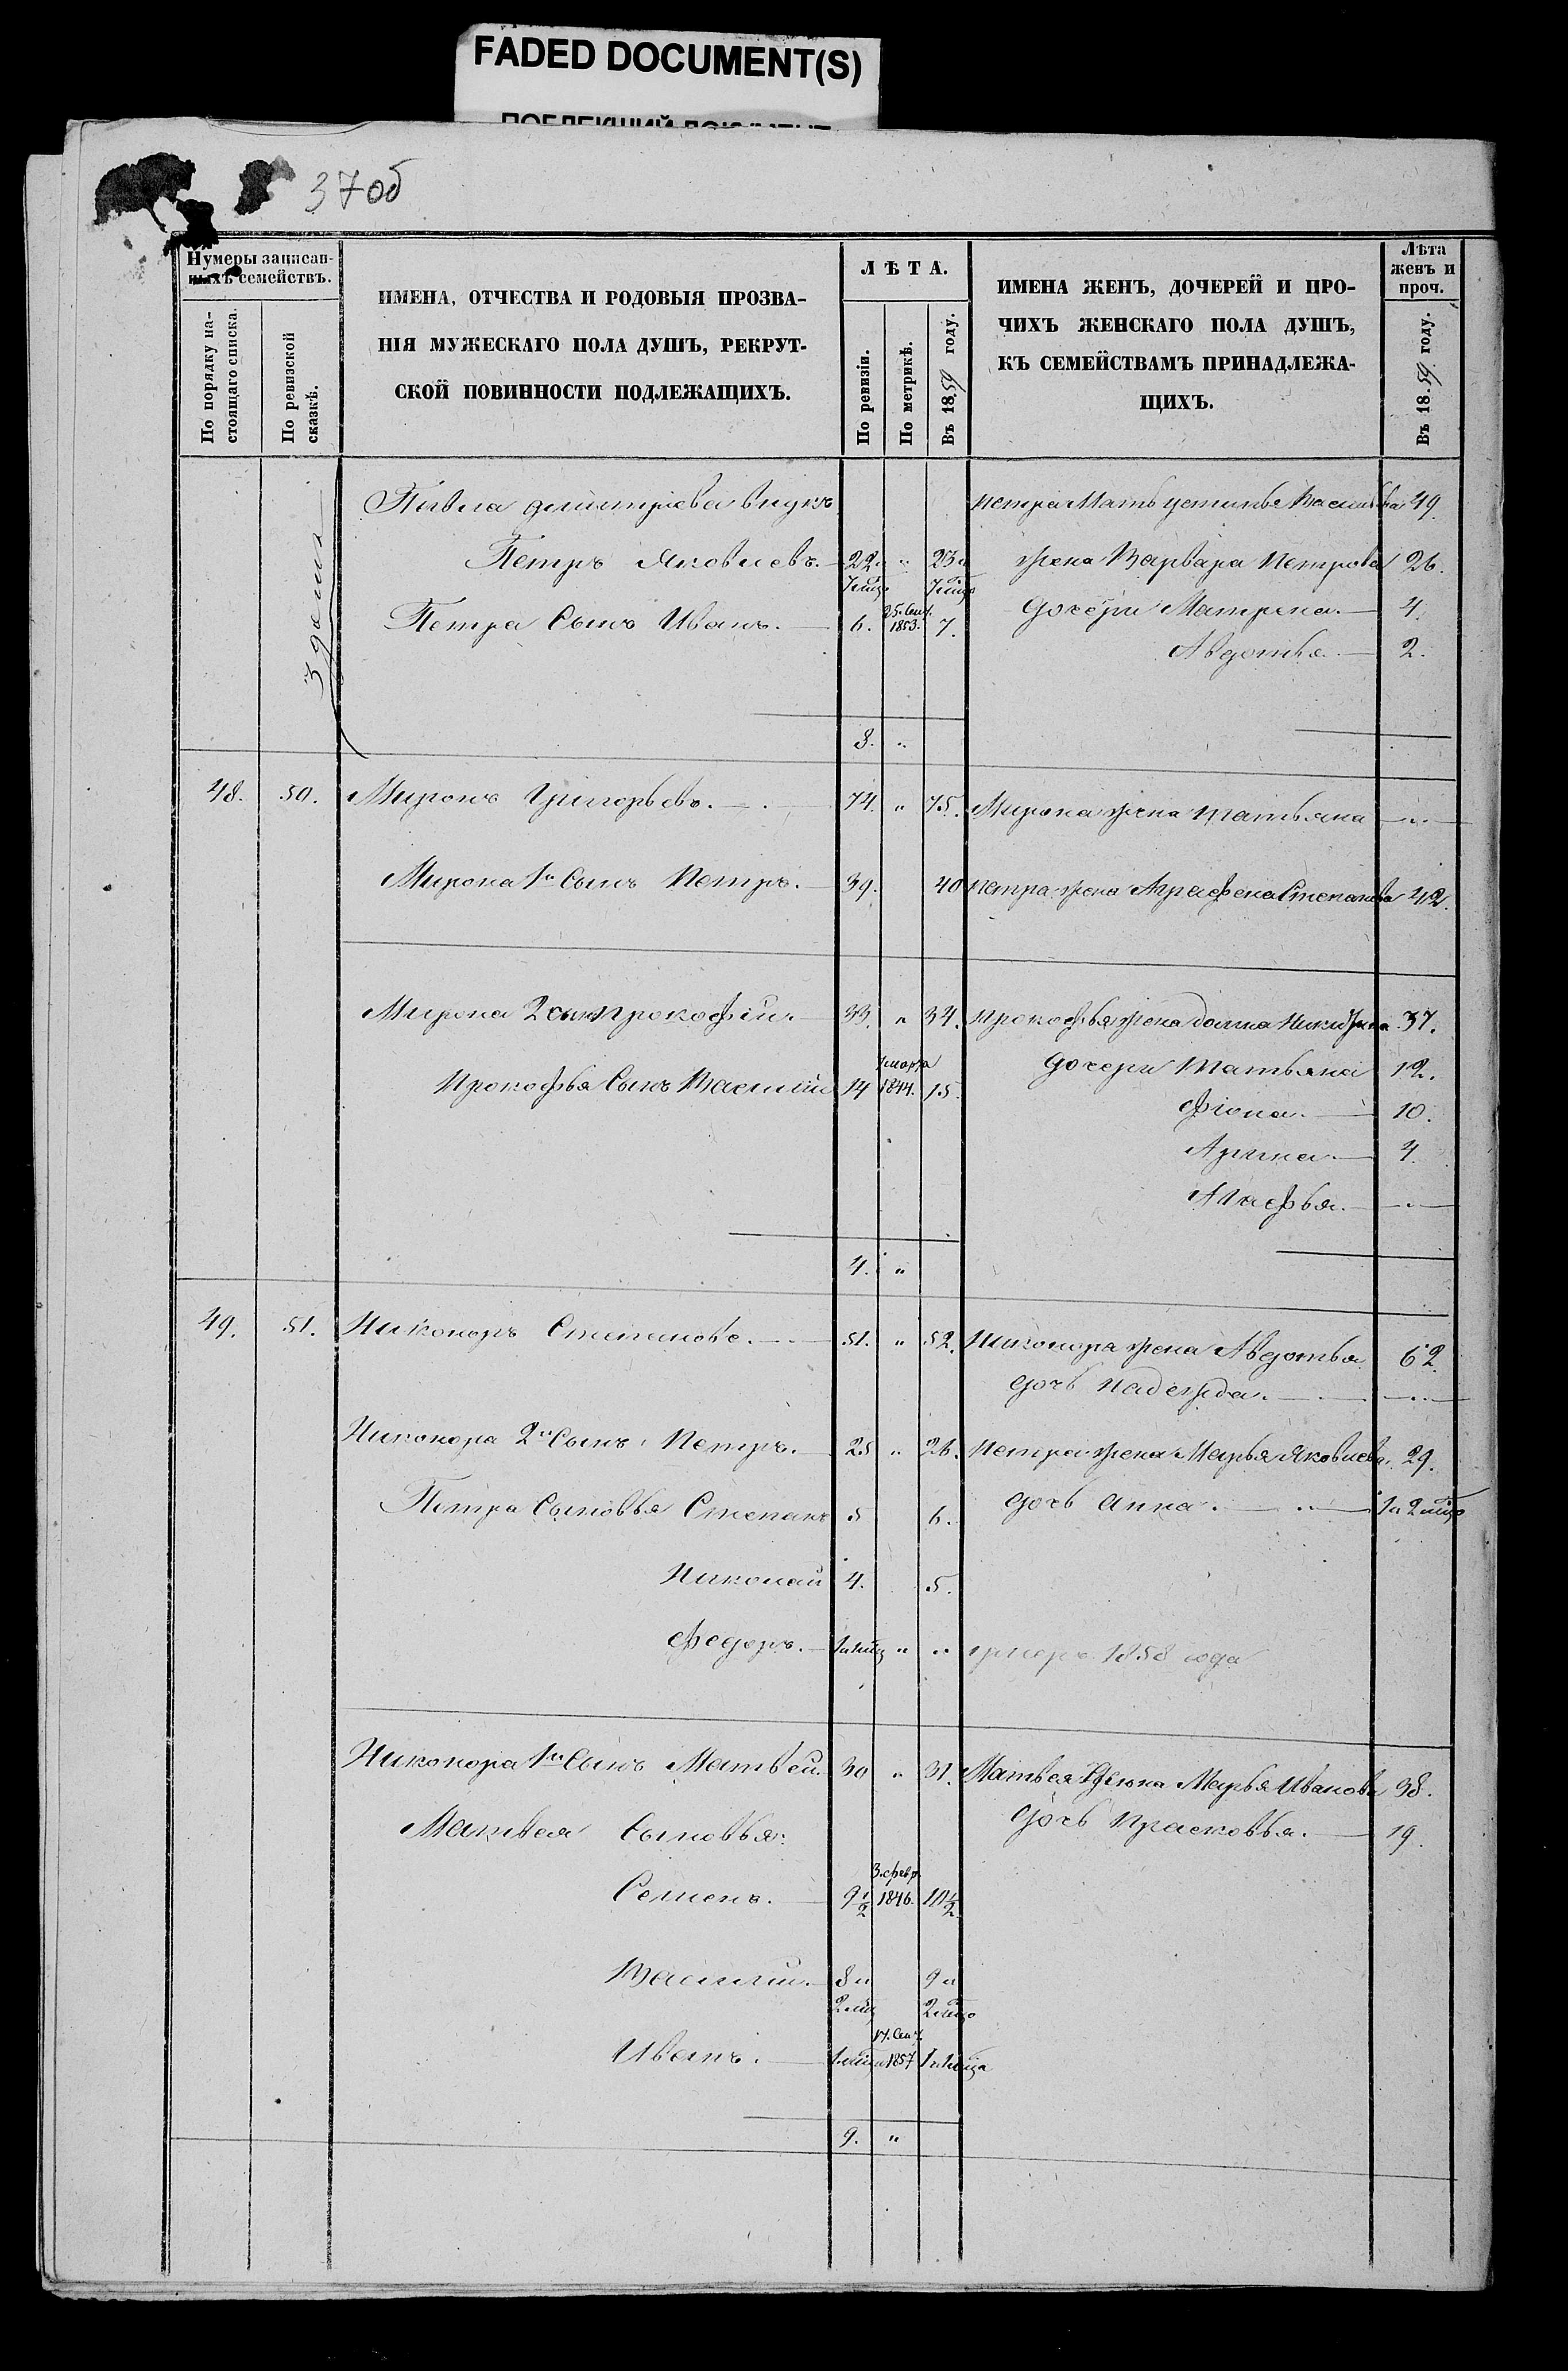 FADED DOCUMENT(S)
ПОБЛЕКШИЙ ДОКУМЕНТ
37об
Нумеры записан-
ныхъ семействъ.
По порядку на-
стоящаго списка.
По ревизской
сказкѣ.
ИМЕНА, ОТЧЕСТВА И РОДОВЫЯ ПРОЗВА-
НІЯ МУЖЕСКАГО ПОЛА ДУШЪ, РЕКРУТ-
СКОЙ ПОВИННОСТИ ПОДЛЕЖАЩИХЪ.
ЛѢТА.
По ревизіи.
По метрикѣ.
Въ 1859 году.
ИМЕНА ЖЕНЪ, ДОЧЕРЕЙ И ПРО-
ЧИХЪ ЖЕНСКАГО ПОЛА ДУШЪ,
КЪ СЕМЕЙСТВАМЪ ПРИНАДЛЕЖА-
ЩИХЪ.
Лѣта
женъ и
проч.
Въ 1859 году.
Павла дмитріева внукъ
Петра Мать Устинья Васильева 49.
Петръ Яковлевъ. 22 и 7 мцо " 23 и 7 мцо
жена Варвара Петрова 26.
Петра Сынъ Иванъ. 6. 25. Сент. 1853. 7.
дочери Матрена. 4.
Авдотья. 2.
8. "
48. 50. Миронъ Григорьевъ. 74. " 75.
Мирона жена Татьяна "
Мирона 1й Сынъ Петръ. 39. 40
Петра жена Аграфена Степанова 42.
Мирона 2 сынъ Прокофій. 33. " 34.
Прокофья жена Домна Никифор 37.
Прокофья Сынъ Василій 14 1 марта 1844. 15.
дочери Татьяна 12.
Фіона. 10.
Арина. 4.
"
4. "
49. 51. Никоноръ Степановъ. 51. " 52.
Никонора жена Авдотья 62.
дочь Надежда. "
Никонора 2й Сынъ Петръ. 25 " 26.
Петра жена Марья Яковлева. 29.
Петра Сыновья Степанъ 5 6.
дочь Анна. 1 и 2 мцо
Николай 4. 5.
Федоръ. " " умеръ 1858 года
Никонора 1й Сынъ Матвей. 30 " 31.
Матвея жена Марья Иванова 38.
Матвея Сыновья:
дочь Прасковья. 19.
Семенъ. 9 1/2 3. февр. 1846. 10 1/2.
Василій. 8 и 2 мцо 9 и 2 мцо
Иванъ. 1 мцо 14. Сент. 1857 1 и 1 мцо
9. "